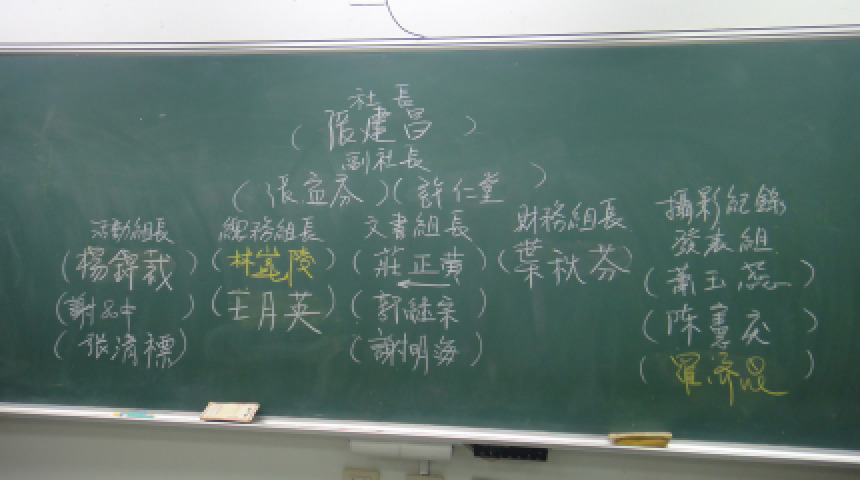 社長
(張建昌)
副社長
(張益芬)(許仁堂)
活動組長 總務組長 文書組長 財務組長 攝影紀錄
發表組
(楊錦裁) (林崑陵) (莊正黃) (葉秋芬) (蕭玉蕊)
(謝 中) (王月英) (郭繼宗) (陳憲 )
(張清標) (謝明海) (羅濟 )